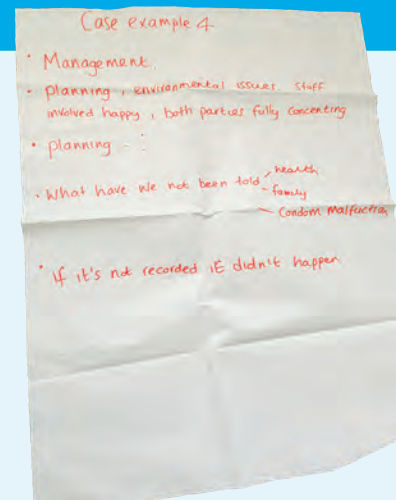 Case example 4
• Management.
• planning, environmental issues. staff
involved happy, both parties fully concenting
• planning - :
• What have we not been told - health
- family
- Condom malfuction
• If it's not recorded it didn't happen